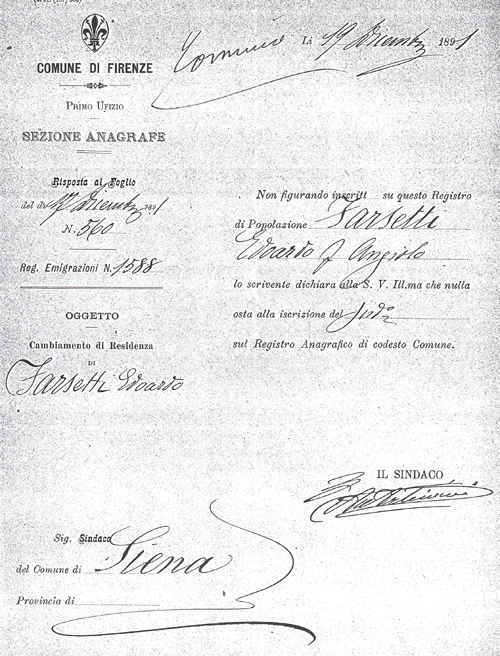 COMUNE DI FIRENZE
PRIMO UFIZIO
SEZIONE ANAGRAFE
Risposta al Foglio
del dì 17 Dicembre 1891
N. 560
Reg. Emigrazioni N. 1588
OGGETTO
Cambiamento di Residenza
DI
Farsetti Edoardo
Comune Li 19 Dicembre 1891
Non figurando inscritt su questo Registro
di Popolazione Farsetti
Edoardo f Angiolo
lo scrivente dichiara alla S. V. Ill.ma che nulla
osta alla iscrizione del
sul Registro Anagrafico di codesto Comune.
IL SINDACO
Sig. Sindaco
del Comune di Siena
Provincia di